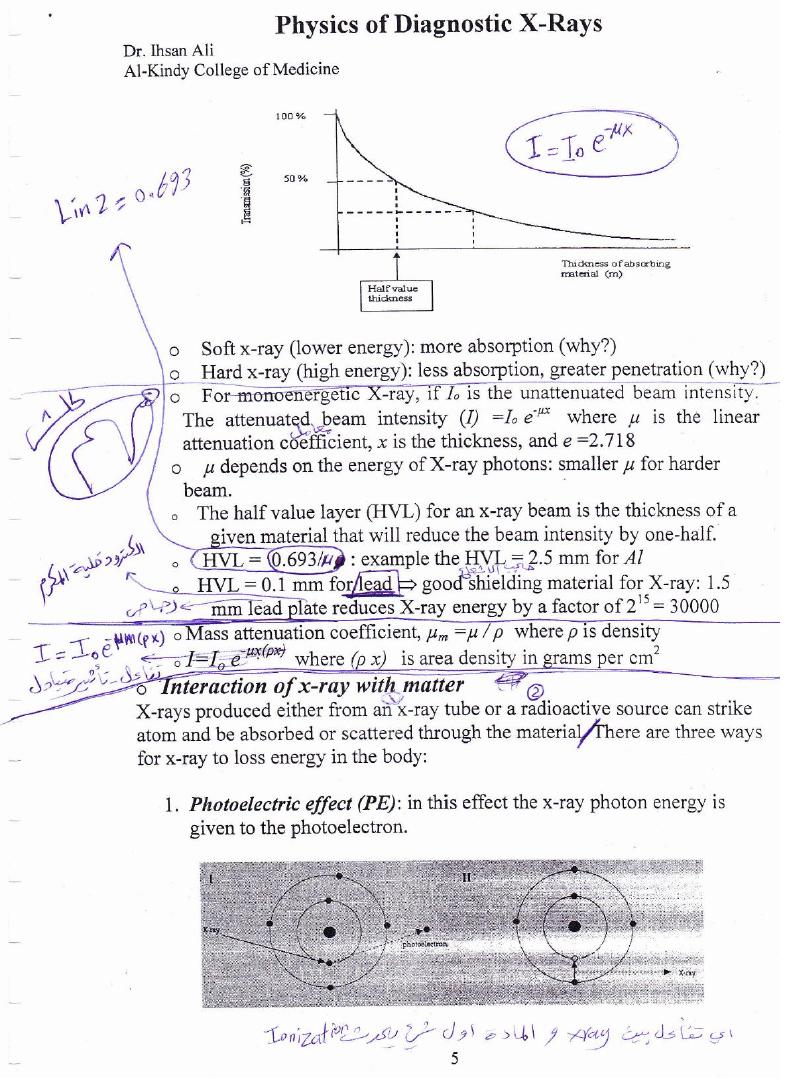 Physics of Diagnostic X-Rays
Dr. Ihsan Ali
Al-Kindy College of Medicine
100 %
I = I₀ e^-μx
50 %
Transmission (%)
Lin 2 = 0.693
Thickness of absorbing
material (m)
Half value
thickness
o Soft x-ray (lower energy): more absorption (why?)
o Hard x-ray (high energy): less absorption, greater penetration (why?)
o For monoenergetic X-ray, if Iₒ is the unattenuated beam intensity.
The attenuated beam intensity (I) =Iₒ e^-μx where μ is the linear
معامل
attenuation coefficient, x is the thickness, and e =2.718
o μ depends on the energy of X-ray photons: smaller μ for harder
beam.
o The half value layer (HVL) for an x-ray beam is the thickness of a
given material that will reduce the beam intensity by one-half.
o HVL = 0.693/μ : example the HVL = 2.5 mm for Al
o HVL = 0.1 mm for lead ⇒ good shielding material for X-ray: 1.5
رصاص
mm lead plate reduces X-ray energy by a factor of 2¹⁵ = 30000
o Mass attenuation coefficient, μₘ =μ / ρ where ρ is density
I = I₀ e^-μm(ρx)
o I=Iₒ e^-μx(ρx) where (ρ x) is area density in grams per cm²
تفاعل - تأثير متبادل
o Interaction of x-ray with matter
① ②
X-rays produced either from an x-ray tube or a radioactive source can strike
atom and be absorbed or scattered through the material There are three ways
for x-ray to loss energy in the body:
1. Photoelectric effect (PE): in this effect the x-ray photon energy is
given to the photoelectron.
I II
X-ray
photoelectron
X-ray
اي تفاعل بين xray و المادة اول شي يحدث Ionization
5